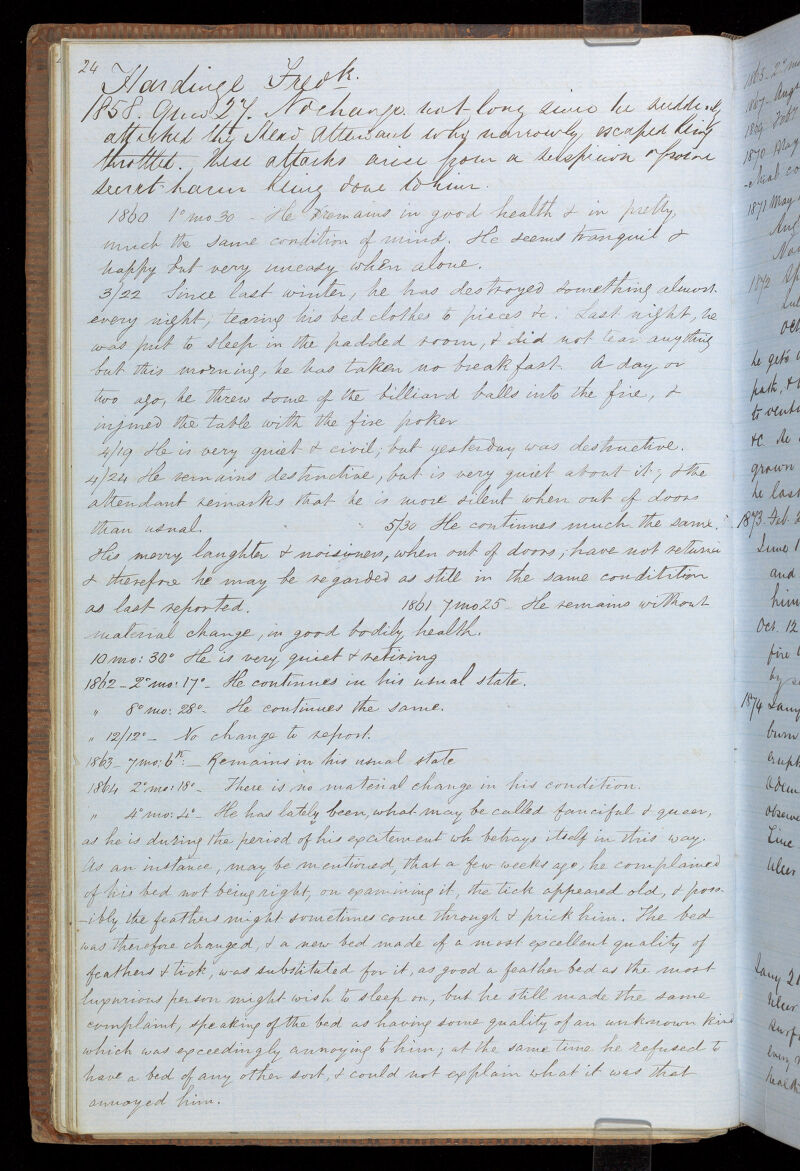 24
Hardinge Fredk.
1858. 9mo 27. No change. not long since he suddenly
attacked the Head Attendant who narrowly escaped being
throttled. These attacks arise from a suspicion of some
secret harm being done to him.
1860 1° mo 30 - He remains in good health & in pretty
much the same condition of mind. He seems tranquil &
happy but very uneasy when alone.
3/22 Since last winter, he has destroyed something almost
every night, tearing his bed clothes to pieces &c. Last night, he
was put to sleep in the padded room, & did not tear anything
but this morning, he has taken no breakfast. A day or
two ago, he threw some of the billiard balls into the fire, &
injured the table with the fire poker
4/19 He is very quiet & civil; but yesterday was destructive.
4/24 He remains destructive, but is very quiet about it; & the
attendant remarks that he is more silent when out of doors
than usual. 5/30 He continues much the same.
His merry laughter & noisiness, when out of doors, have not returned
& therefore he may be regarded as still in the same condition
as last reported. 1861 7mo 25 - He remains without
material change, in good bodily health.
10 mo: 30° He is very quiet & retiring
1862 - 2° mo: 17° - He continues in his usual state.
" 8° mo: 28° - He continues the same.
" 12/12° - No change to report.
1863 - 7mo: 6th: - Remains in his usual state
1864 2° mo: 18° - There is no material change in his condition.
" 4° mo: 4° - He has lately been, what may be called fanciful & queer,
as he is during the period of his excitement wh betrays itself in this way.
As an instance, may be mentioned, that a few weeks ago, he complained
of his bed not being right, on examining it, the tick appeared old, & poss-
-ibly the feathers might sometimes come through & prick him. The bed
was therefore changed, & a new bed made of a most excellent quality of
feathers & tick, was substituted for it, as good a feather bed as the most
luxurious person might wish to sleep on, but he still made the same
complaint, speaking of the bed as having some quality of an unknown kind
which was exceedingly annoying to him; at the same time he refused to
have a bed of any other sort, & could not explain what it was that
annoyed him.
1865 - 2° mo
1867 - Augt
1869
1870
1871 May
1872
Oct
he gets
path, &
to
&c. He
grown
he last
1873. Feb. 2
June 1
and
him
Oct. 12
fire
by
1874 Jany
burn
observe
ulcer
Jany 21
ulcer
health